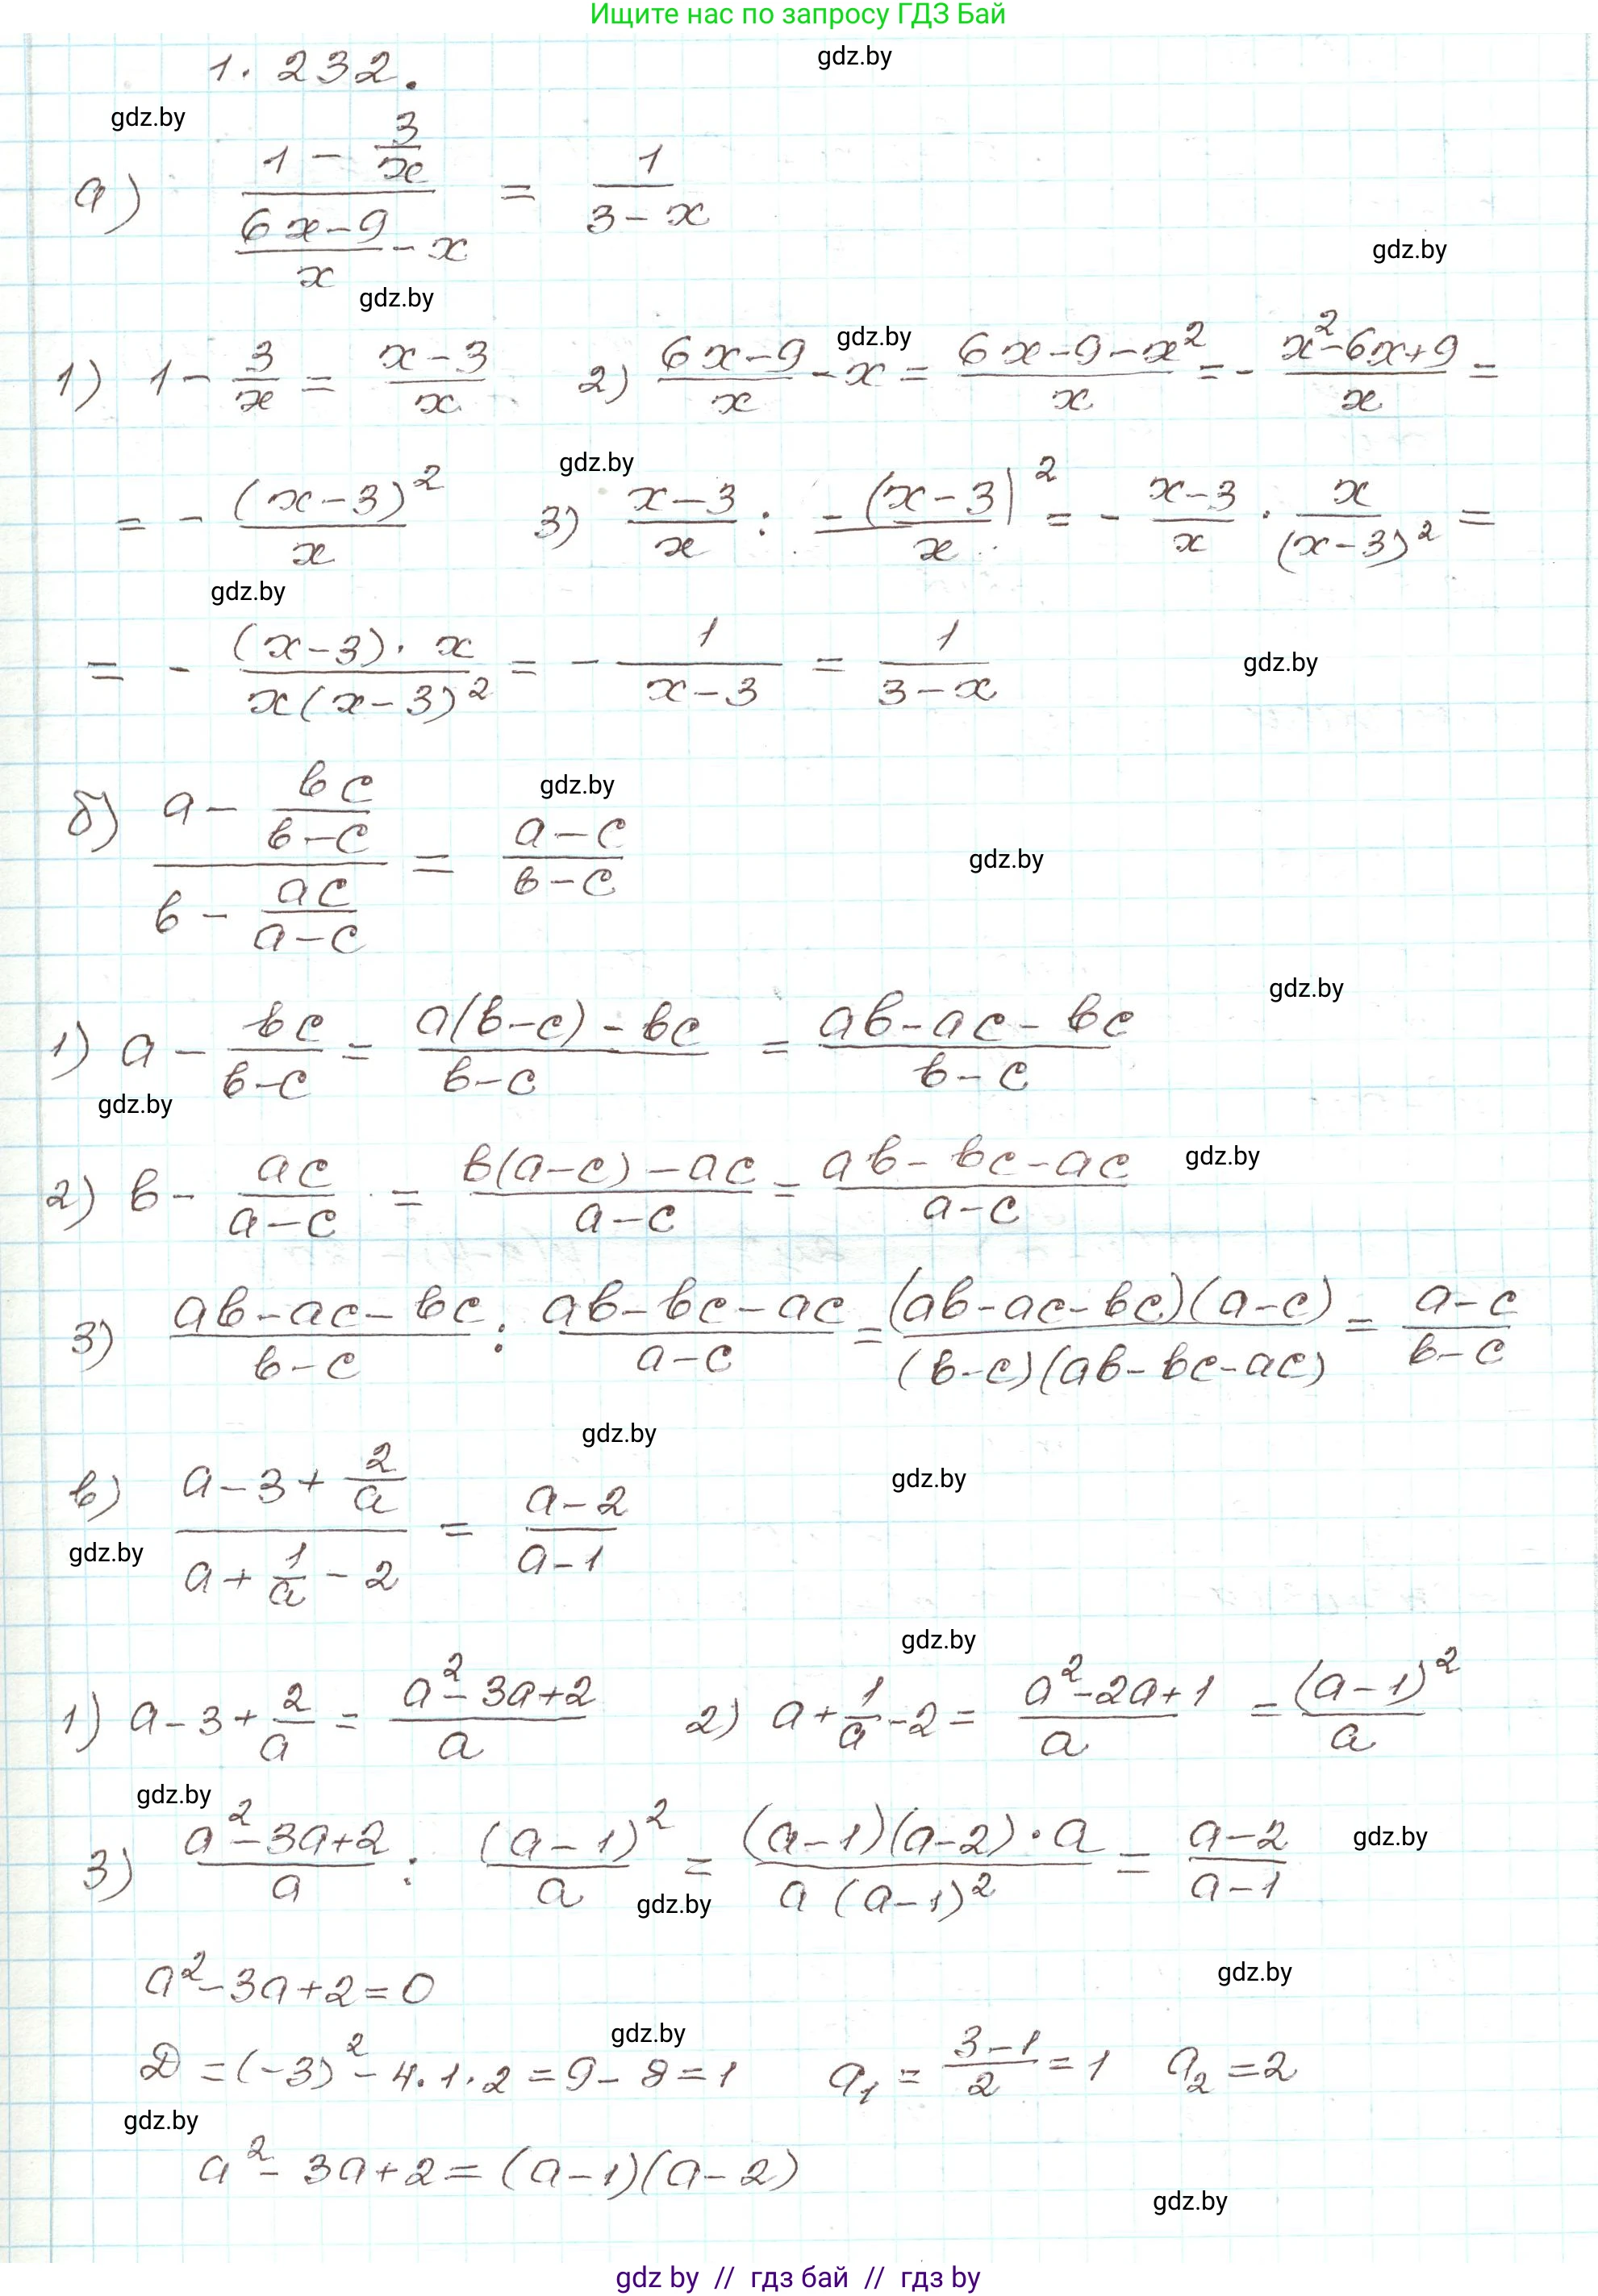 Ищите нас по запросу ГДЗ Бай
1.232.
gdz.by
gdz.by
а) (1 - 3/x) / ((6x-9)/x - x) = 1/(3-x)
gdz.by
gdz.by
1) 1 - 3/x = (x-3)/x 2) (6x-9)/x - x = (6x-9-x²)/x = - (x²-6x+9)/x =
gdz.by
= - (x-3)²/x 3) (x-3)/x : -(x-3)²/x = - (x-3)/x · x/(x-3)² =
gdz.by
gdz.by
= - ((x-3)·x)/(x(x-3)²) = - 1/(x-3) = 1/(3-x)
gdz.by
б) (a - вc/(в-c)) / (в - ac/(a-c)) = (a-c)/(в-c)
gdz.by
gdz.by
1) a - вc/(в-c) = (a(в-c)-вc)/(в-c) = (aв-ac-вc)/(в-c)
gdz.by
gdz.by
2) в - ac/(a-c) = (в(a-c)-ac)/(a-c) = (aв-вc-ac)/(a-c)
gdz.by
3) (aв-ac-вc)/(в-c) : (aв-вc-ac)/(a-c) = ((aв-ac-вc)(a-c))/((в-c)(aв-вc-ac)) = (a-c)/(в-c)
gdz.by
в) (a-3+2/a) / (a+1/a-2) = (a-2)/(a-1)
gdz.by
gdz.by
gdz.by
1) a-3+2/a = (a²-3a+2)/a 2) a+1/a-2 = (a²-2a+1)/a = (a-1)²/a
gdz.by
3) (a²-3a+2)/a : (a-1)²/a = ((a-1)(a-2)·a)/(a(a-1)²) = (a-2)/(a-1)
gdz.by
gdz.by
a²-3a+2=0
gdz.by
gdz.by
D=(-3)²-4·1·2=9-8=1 a₁=(3-1)/2=1 a₂=2
gdz.by
a²-3a+2=(a-1)(a-2)
gdz.by
gdz by // гдз бай // гдз by